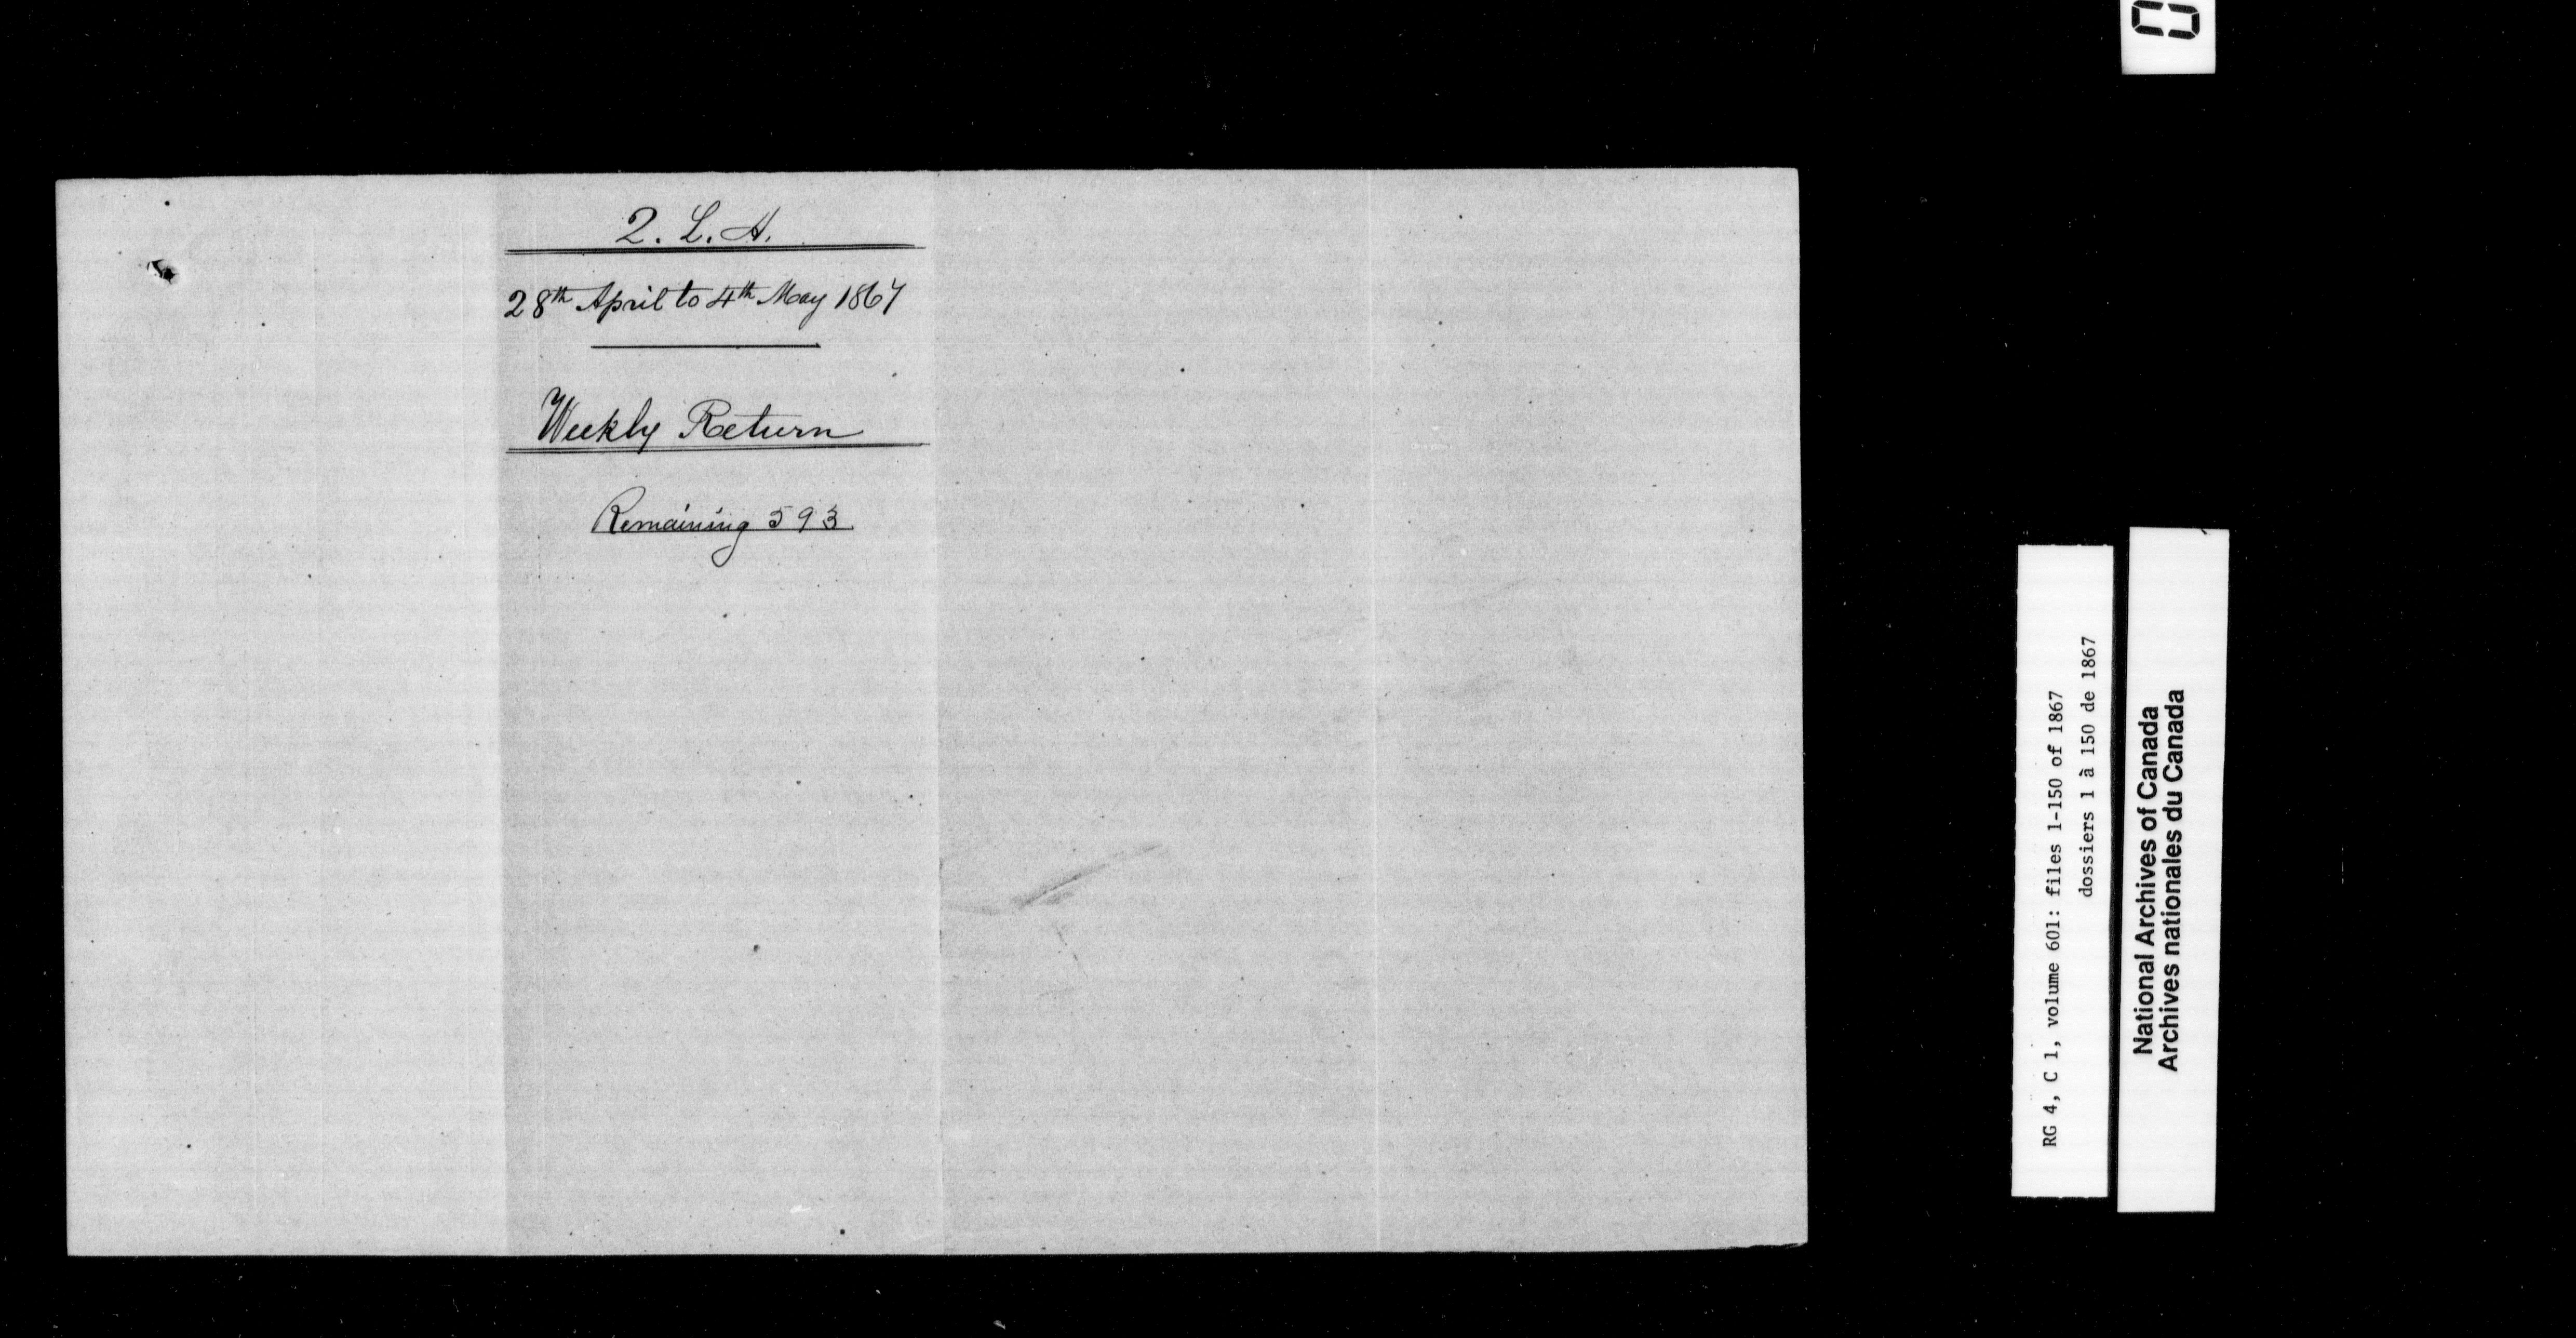 2. L. A.
28th April to 4th May 1867
Weekly Return
Remaining 593.
RG 4, C 1, volume 601: files 1-150 of 1867
dossiers 1 à 150 de 1867
National Archives of Canada
Archives nationales du Canada